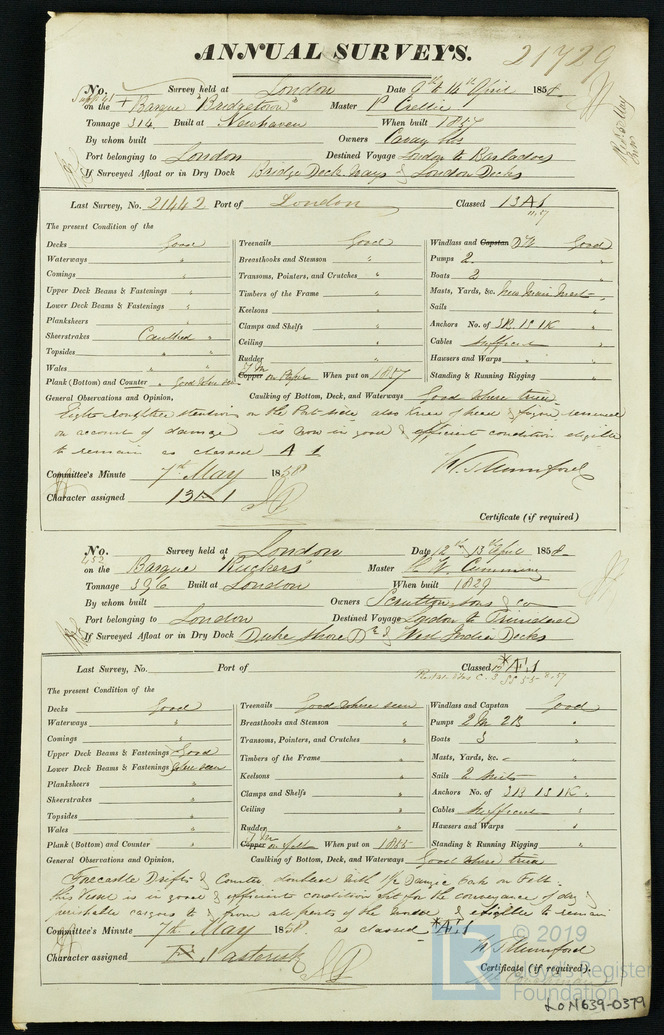 ANNUAL SURVEYS.
21729
No. Survey held at London Date 9th to 14th April 1858
on the + Barque "Bridgetown" Master P
Tonnage 314 Built at Newhaven When built 1857
By whom built Owners
Port belonging to London Destined Voyage London to Barbadoes
If Surveyed Afloat or in Dry Dock Bridge Dock & London Docks
Last Survey, No. 21442 Port of London Classed 13 A 1
11,57
The present Condition of the
Decks Good
Waterways "
Comings "
Upper Deck Beams & Fastenings "
Lower Deck Beams & Fastenings "
Planksheers "
Sheerstrakes Caulked "
Topsides " "
Wales " "
Plank (Bottom) and Counter " Good where seen
Treenails Good
Breasthooks and Stemson "
Transoms, Pointers, and Crutches "
Timbers of the Frame "
Keelsons "
Clamps and Shelfs "
Ceiling "
Rudder "
Y M
Copper on Paper When put on 1857
Windlass and Capstan Good
Pumps 2 "
Boats 2 "
Masts, Yards, &c. New Main Mast "
Sails "
Anchors No. of 3B. 1S 1K "
Cables Sufficient "
Hawsers and Warps "
Standing & Running Rigging "
General Observations and Opinion, Caulking of Bottom, Deck, and Waterways Good where tried
Eight on the Port side also knee of head & renewed
on account of damage is now in good & efficient condition eligible
to remain as classed A 1
W. J. Mumford
Committee's Minute 7th May 1858
Character assigned 13 A 1
Certificate (if required)
No. 452 Survey held at London Date 12th 13th April 1858
on the Barque "Ruckers" Master W. Cumming
Tonnage 396 Built at London When built 1829
By whom built Owners Scrutton Sons & Co
Port belonging to London Destined Voyage London to Trinidad
If Surveyed Afloat or in Dry Dock Duke Shore Dk & West India Docks
Last Survey, No. Port of Classed *Æ 1
The present Condition of the
Decks Good
Waterways "
Comings "
Upper Deck Beams & Fastenings Good
Lower Deck Beams & Fastenings where seen
Planksheers "
Sheerstrakes "
Topsides "
Wales "
Plank (Bottom) and Counter "
Treenails Good where seen
Breasthooks and Stemson "
Transoms, Pointers, and Crutches "
Timbers of the Frame "
Keelsons "
Clamps and Shelfs "
Ceiling "
Rudder "
Y M
Copper on felt When put on 1855
Windlass and Capstan Good
Pumps 2 M 2B "
Boats 3 "
Masts, Yards, &c. "
Sails 2 suits
Anchors No. of 3B 1S 1K "
Cables Sufficient "
Hawsers and Warps "
Standing & Running Rigging "
General Observations and Opinion, Caulking of Bottom, Deck, and Waterways Good where tried
Forecastle Drifts & Counter doubled with 1 1/2 Danzic Oak on Felt.
this Vessel is in good & efficient condition fit for the conveyance of dry &
perishable cargoes to & from all parts of the world & eligible to remain
Committee's Minute 7th May 1858 as classed *Æ 1
W. J. Mumford
Character assigned Æ 1 asterisk
Certificate (if required).
© 2019
LR
Lloyd's Register
Foundation
LON639-0379